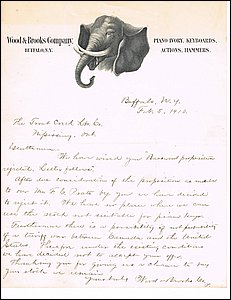 Wood & Brooks Company,
BUFFALO, N.Y.
PIANO IVORY, KEYBOARDS,
ACTIONS, HAMMERS.
Buffalo, N.Y.
Feb. 5, 1910.
The Trout Creek Co.
Nipissing, Ont
Gentlemen:
We have wired you "Basswood proposition
rejected. Letter follows".
After due consideration of the proposition as made
to our Mr. by you we have decided
to reject it. We have no place where we can
use the stock not suitable for piano keys.
Furthermore there is a possibility if not probability
of a tariff war between Canada and the United
States. Therefore under the existing conditions
we have decided not to accept your offer.
Thanking you for giving us a chance to buy
you stock we remain
Yours truly Wood & Brooks Co.